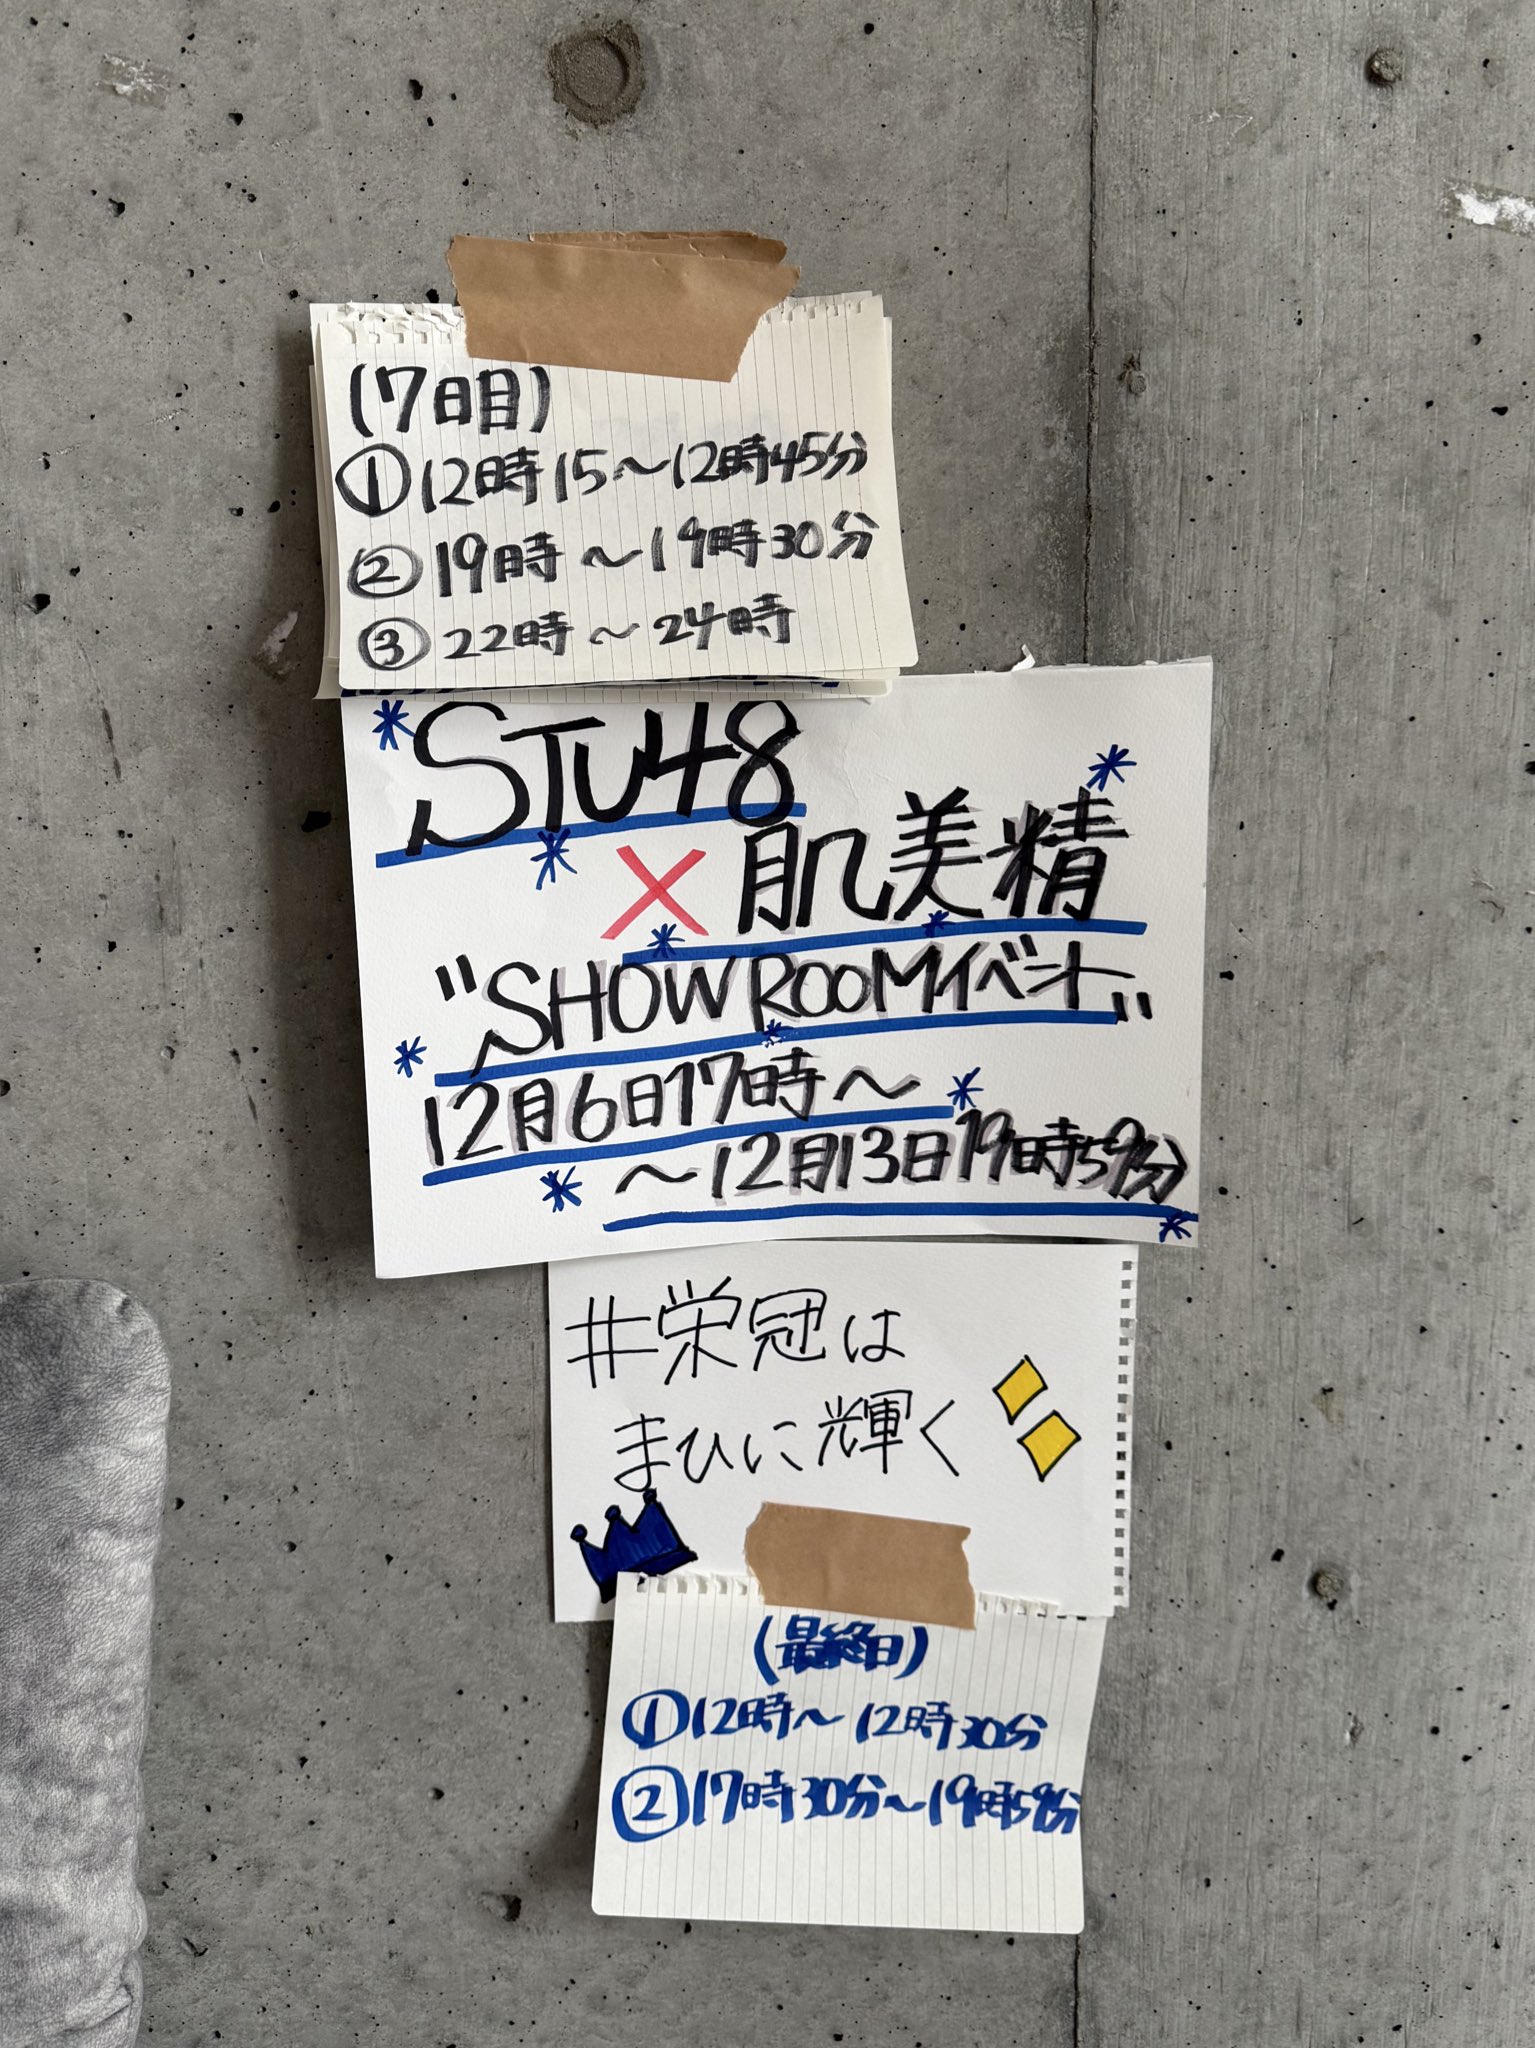 (7日目)
①12時15~12時45分
②19時~19時30分
③22時~24時
STU48
×肌美精
"SHOWROOMイベント"
12月6日17時~
~12月13日19時59分
#栄冠は
まひに輝く
(最終日)
①12時~12時30分
②17時30分~19時59分